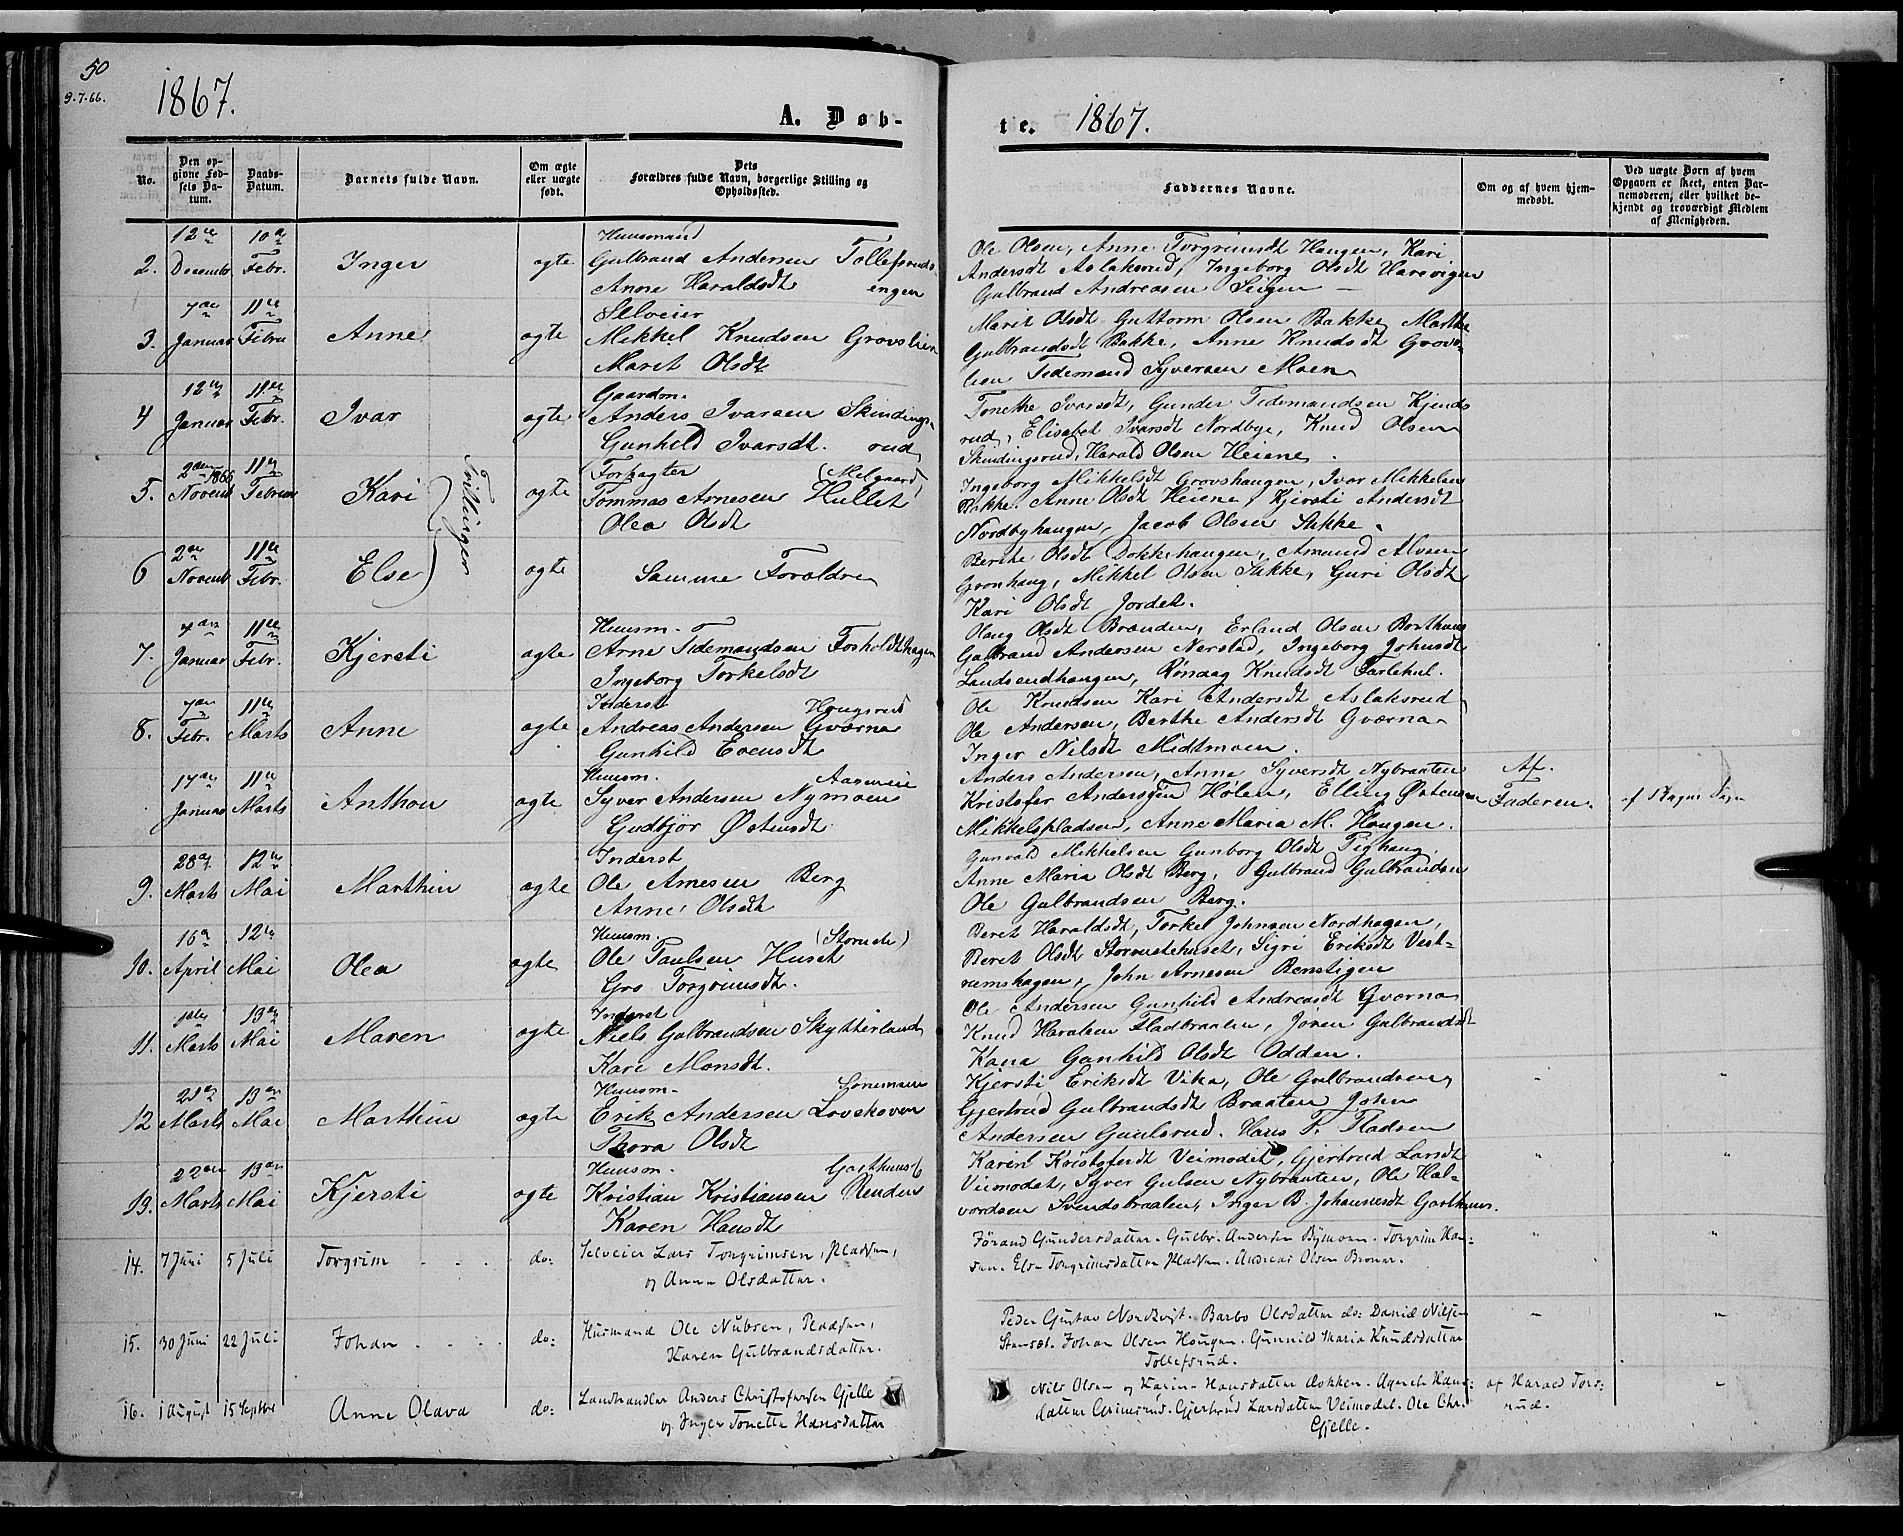 50
9.-7.-66.
1867.
A. Døb-
te. 1867.
No.
Den op-
givne Fød-
sels Da-
tum.
Daabs-
Datum.
Barnets fulde Navn.
Om ægte
eller uægte
født.
Dets
Forældres fulde Navn, borgerlige Stilling og
Opholdssted.
Faddernes Navne.
Om og af hvem hjem-
medøbt.
Ved uægte Børn af hvem
Opgaven er skeet, enten Bar-
nemoderen, eller hvilket be-
kjendt og troværdigt Medlem
af Menigheden.
2. 12te Decembr 10de Febr. Inger ægte
Huusmand
Gulbrand Andersen Tollefsruds-
Anne Haraldsdt engen
Ole Olsen, Anne Torgrimsdt Haugen, Kari
Andersdt Aslaksrud, Ingeborg Olsdt Harevigen
Gulbrand Andreasen Leigen
3. 7de Januar 11te Febru Anne ægte
Selveier
Mikkel Knudsen Grovslien
Marit Olsdt
Marit Olsdt Guttorm Olsen Bakke, Marthe
Gulbrandsdt Bakke, Anne Knudsdt Grovs-
lien Tidemand Syversen Moen
4 12te Januar 11te Febr. Ivar ægte
Gaardm.
Anders Ivarsen Skindings-
Gunhild Ivarsdt. rud
Tonethe Ivarsdt, Gunder Tidemandsen Kjends
rud, Elisabet Ivarsdt Nordbye, Knud Olsen
Skindingsrud, Harald Olsen Heiene.
5. 2den 1866 Novemb 11te Februar Kari Tvillinger ægte
Forpagter (Melgaard)
Tommas Arnesen Hullet
Olea Olsdt
Ingeborg Mikkelsdt Grovshaugen, Ivar Mikkelsen
Bakke. Anne Olsdt Heiene, Kjersti Andersdt
Nordbyhaugen, Jacob Olsen Sukke.
6 2den Novemb 11te Febr. Else ægte
Samme Forældre
Berthe Olsdt Dokkehaugen, Amund Alvsen
Grønhaug, Mikkel Olsen Sukke, Guri Olsdt
Kari Olsdt Jordet.
7. 4de Januar 11te Febr. Kjersti ægte
Huusm.
Arne Tidemandsen Forholdthagen
Ingeborg Torkelsdt
Olaug Olsdt Brænden, Erland Olsen Borthaug
Gulbrand Andersen Nerstad, Ingeborg Johnsdt
Landsendhaugen, Røndaug Knudsdt Jarlehul.
8. 7de Febr. 11te Marts Anne ægte
Inderst Haugsrud
Andreas Andersen Gværna
Gunhild Evensdt
Ole Knudsen Kari Andersdt Aslaksrud
Ole Andersen, Berthe Andersdt Gværna
Inger Nilsdt Midtmoen.
17de Januar 11te Marts Anthon ægte
Huusm.
Syver Andersen Nymoen
Gudbjør Østensdt
Anders Andersen, Anne Syversdt Nybraaten
Kristofer Andersen Holen, Elling Østensen
Mikkelspladsen, Anne Maria M. Haugen.
Af
Faderen.
9. 28de Marts 12te Mai Marthin ægte
Inderst
Ole Arnesen Berg
Anne Olsdt
Gunvald Mikkelsen Gunborg Olsdt Tighaug.
Anne Maria Olsdt Berg, Gulbrand Gulbrandsen
Ole Gulbrandsen Berg.
10. 16de April 12te Mai Olea ægte
Huusm. (Storuste)
Ole Paulsen Huset
Gro Torgrimsdt.
Beret Haraldsdt, Torkel Johnsen Nordhagen,
Beret Olsdt Storrustehuset, Sigri Eriksdt Vest-
rumshagen, John Arnesen Renstigen
11. 1ste Marts 19de Mai Maren ægte
Inderst
Niels Gulbrandsen Skytterland
Kari Monsdt.
Ole Andersen Gunhild Andreasdt Gværna
Knud Haralsen Fladbraaten, Jøren Gulbrandsdt
Kana Gunhild Olsdt Odden.
12 21de Marts 19de Mai Marthin ægte
Huusm.
Erik Andersen Loveskoven
Thora Olsdt
Kjersti Eriksdt Vika, Ole Gulbrandsen,
Gjertrud Gulbrandsdt Braaten John
Andersen Gaulsrud. Hans F. Fladsen
"
"
19. 22de Marts 19de Mai Kjersti ægte
Huusm. Garthuus
Kristian Kristiansen Renden
Karen Hansdt
Karen Kristofersdt Veimodet, Gjertrud Larsdt
Veimodet, Syver Gulsen Nybraaten, Ole Hal-
vordsen Svendsbraaten, Inger B. Johannesdt Garthuus.
"
"
14. 7 Juni 5 Juli Torgrim do:
Selveier Lars Torgrimsen, Pladsen,
og Anne Olsdatter.
Jørand Gundersdatter. Gulbr. Andersen Bymoen. Torgrim Han-
sen. Else Torgrimsdatter Pladsen. Andreas Olsen Broner.
"
"
15. 30 Juni 22 Juli Johan do:
Husmand Ole Nubsen, Pladsen,
Karen Gulbrandsdatter.
Peder Gustav Nordkvist. Barbo Olsdatter do: Daniel Nilsen
Stensæt. Johan Olsen Haugen. Gunnild Maria Knudsdatter
Tollefsrud.
"
"
16. 1 August 15 Septbr Anne Olava do:
Landhandler Anders Christofersen Gjelle
og Inger Tonette Hansdatter
Nils Olsen og Karin Hansdatter Dokken. Agnete Hans-
datter Grimsrud. Gjertrud Larsdatter Veimodet. Ole Chr.
Gjelle.
af Harald Tors-
rud.
"